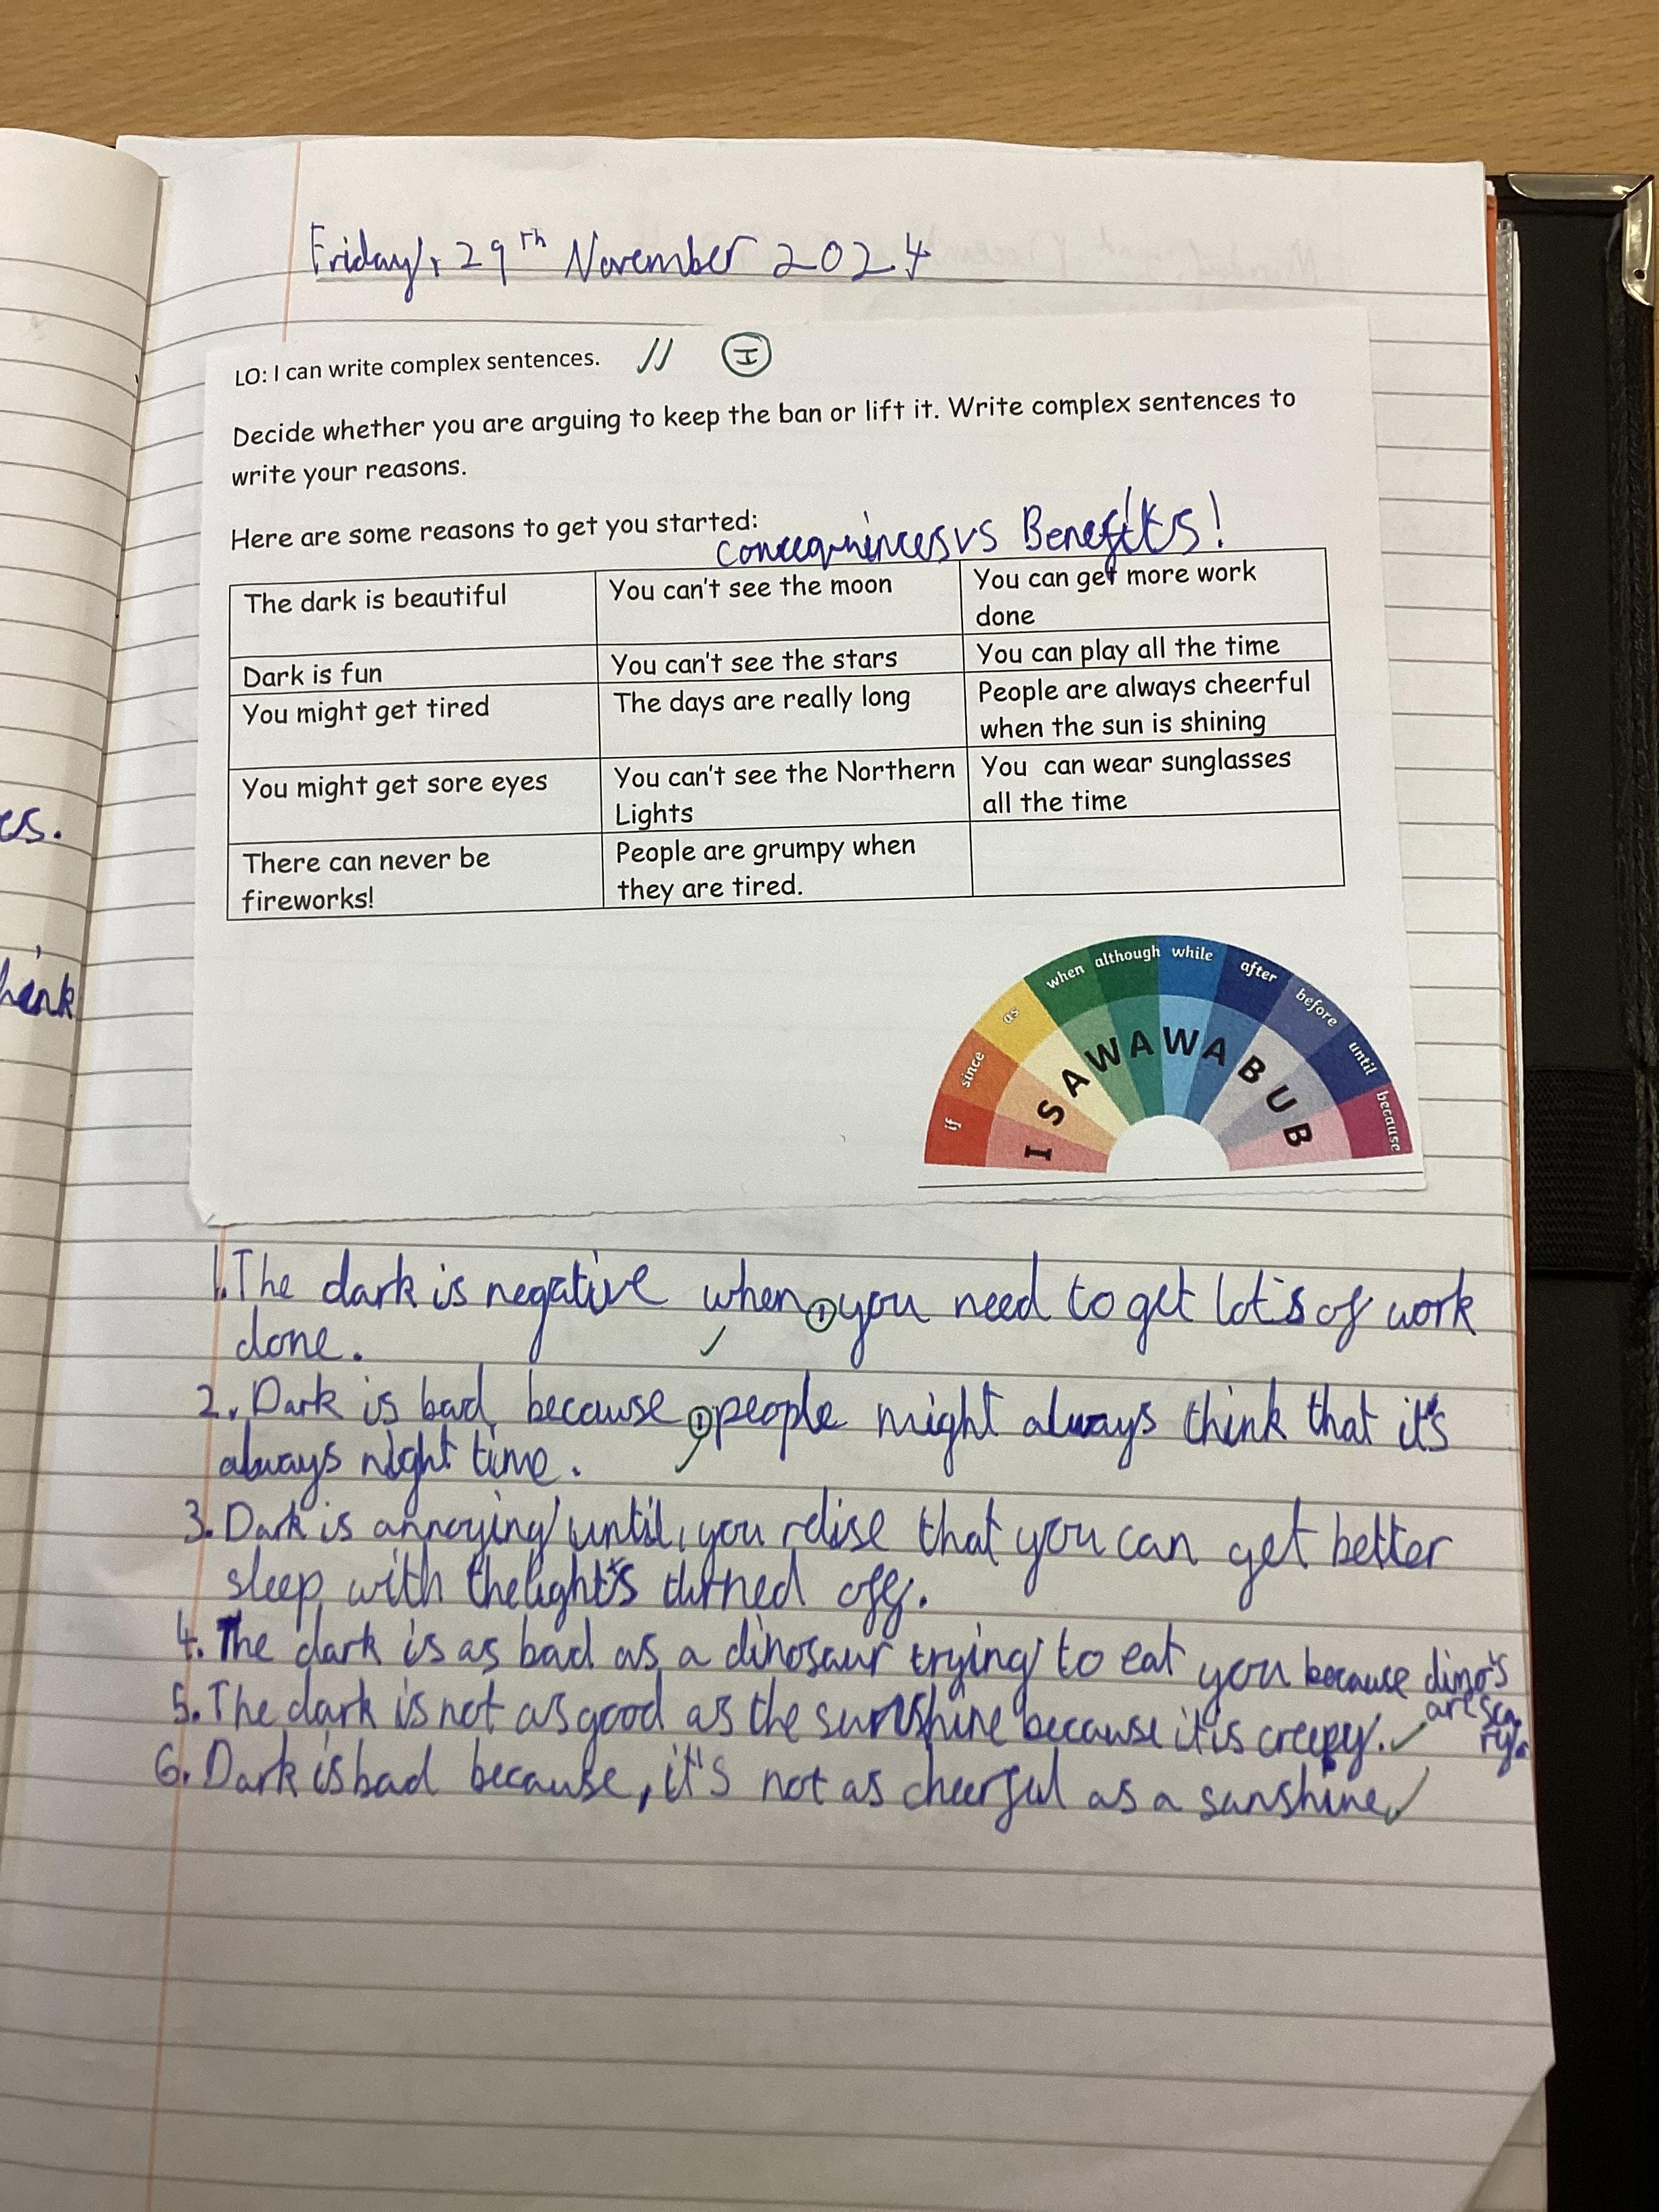 Friday, 29th November 2024
LO: I can write complex sentences.
I
Decide whether you are arguing to keep the ban or lift it. Write complex sentences to
write your reasons.
Here are some reasons to get you started:
vs Benefits!
The dark is beautiful
You can't see the moon
You can get more work
done
Dark is fun
You can't see the stars
You can play all the time
You might get tired
The days are really long
People are always cheerful
when the sun is shining
You might get sore eyes
You can't see the Northern
Lights
You can wear sunglasses
all the time
There can never be
fireworks!
People are grumpy when
they are tired.
if
since
as
when
although
while
after
before
until
because
I S A W A W A B U B
es.
hink
1. The dark is negative when you need to get lot's of work
done.
2. Dark is bad because people might always think that it's
always night time.
3. Dark is annoying until, you relise that you can get better
sleep with the light's turned off.
4. The dark is as bad as a dinosaur trying to eat you because dino's
are sca
ry.
5. The dark is not as good as the sunshine because it is creepy.
6. Dark is bad because, it's not as cheerful as a sunshine